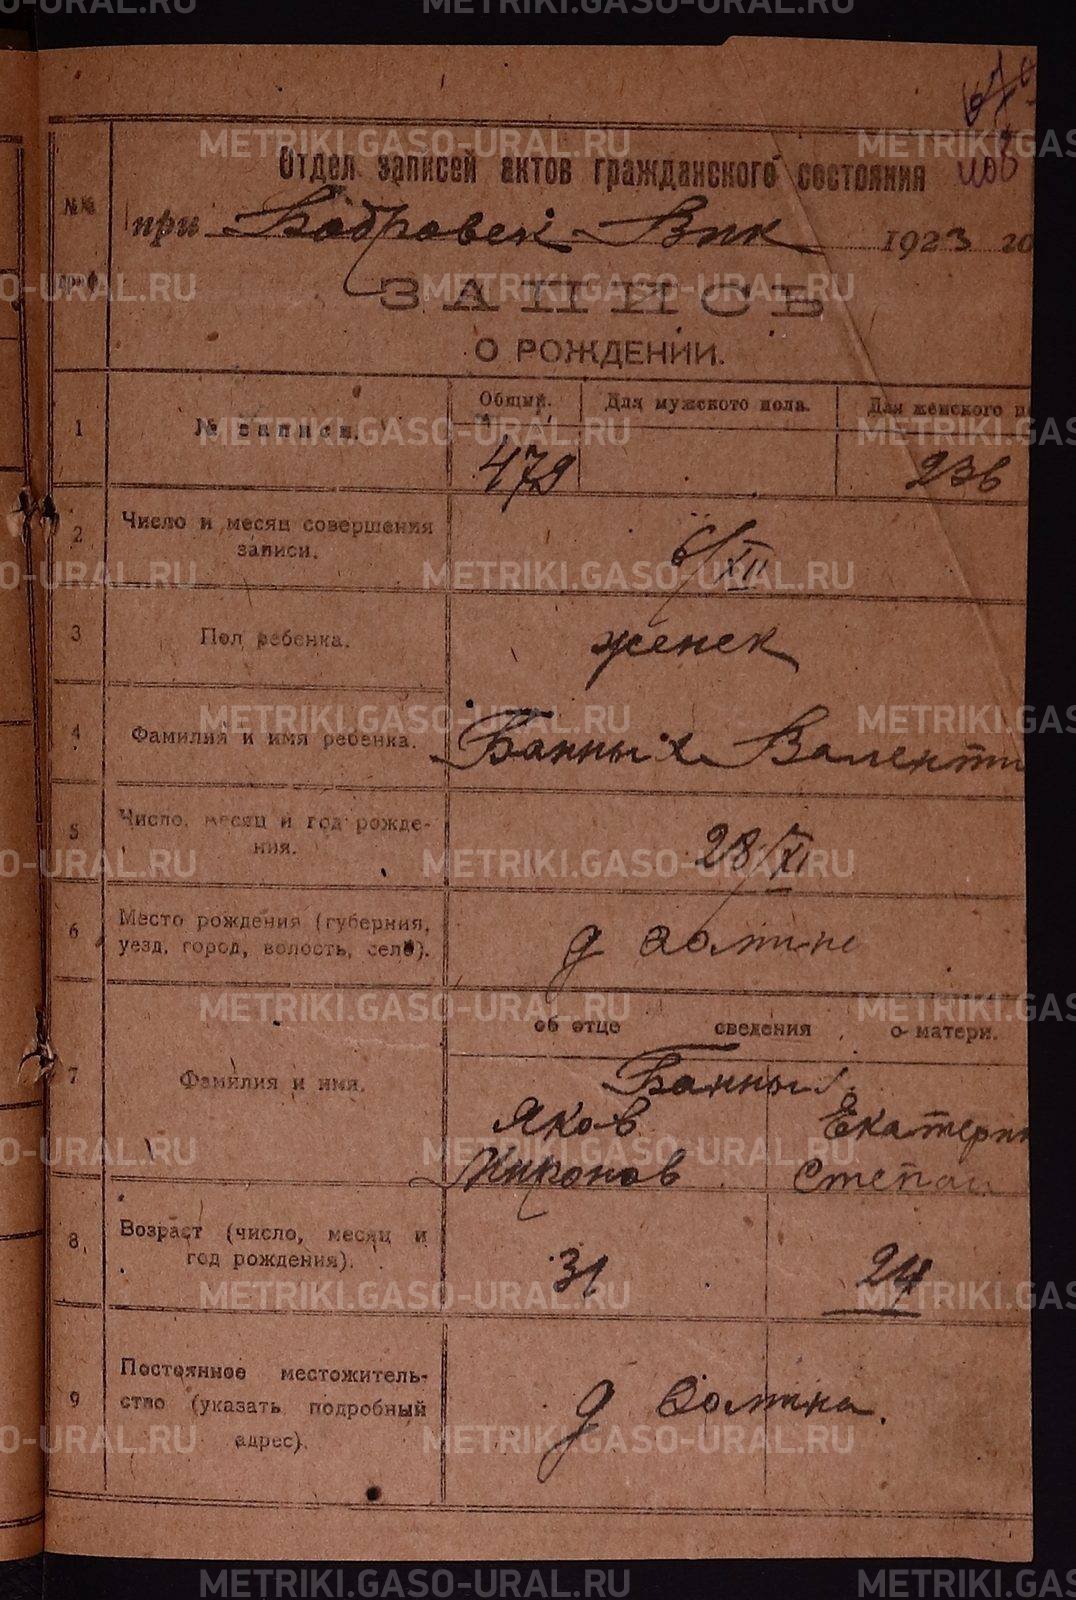 Отдел записей актов гражданского состояния
№№
граф.
при Бобровск Вик 1923 го
ЗАПИСЬ
О РОЖДЕНИИ.
1
№ записи.
Общий.
Для мужского пола.
Для женского по
479
236
2
Число и месяц совершения
записи.
6/XII
3
Пол ребенка.
женск
4
Фамилия и имя ребенка.
Банных Валенти
5
Число, месяц и год рожде-
ния.
28/XI
6
Место рождения (губерния,
уезд, город, волость, село).
д
об отце сведения о матери.
7
Фамилия и имя.
Банных
Яков Екатерин
Миронов Степан
8
Возраст (число, месяц и
год рождения).
31
24
9
Постоянное местожитель-
ство (указать подробный
адрес).
д
METRIKI.GASO-URAL.RU